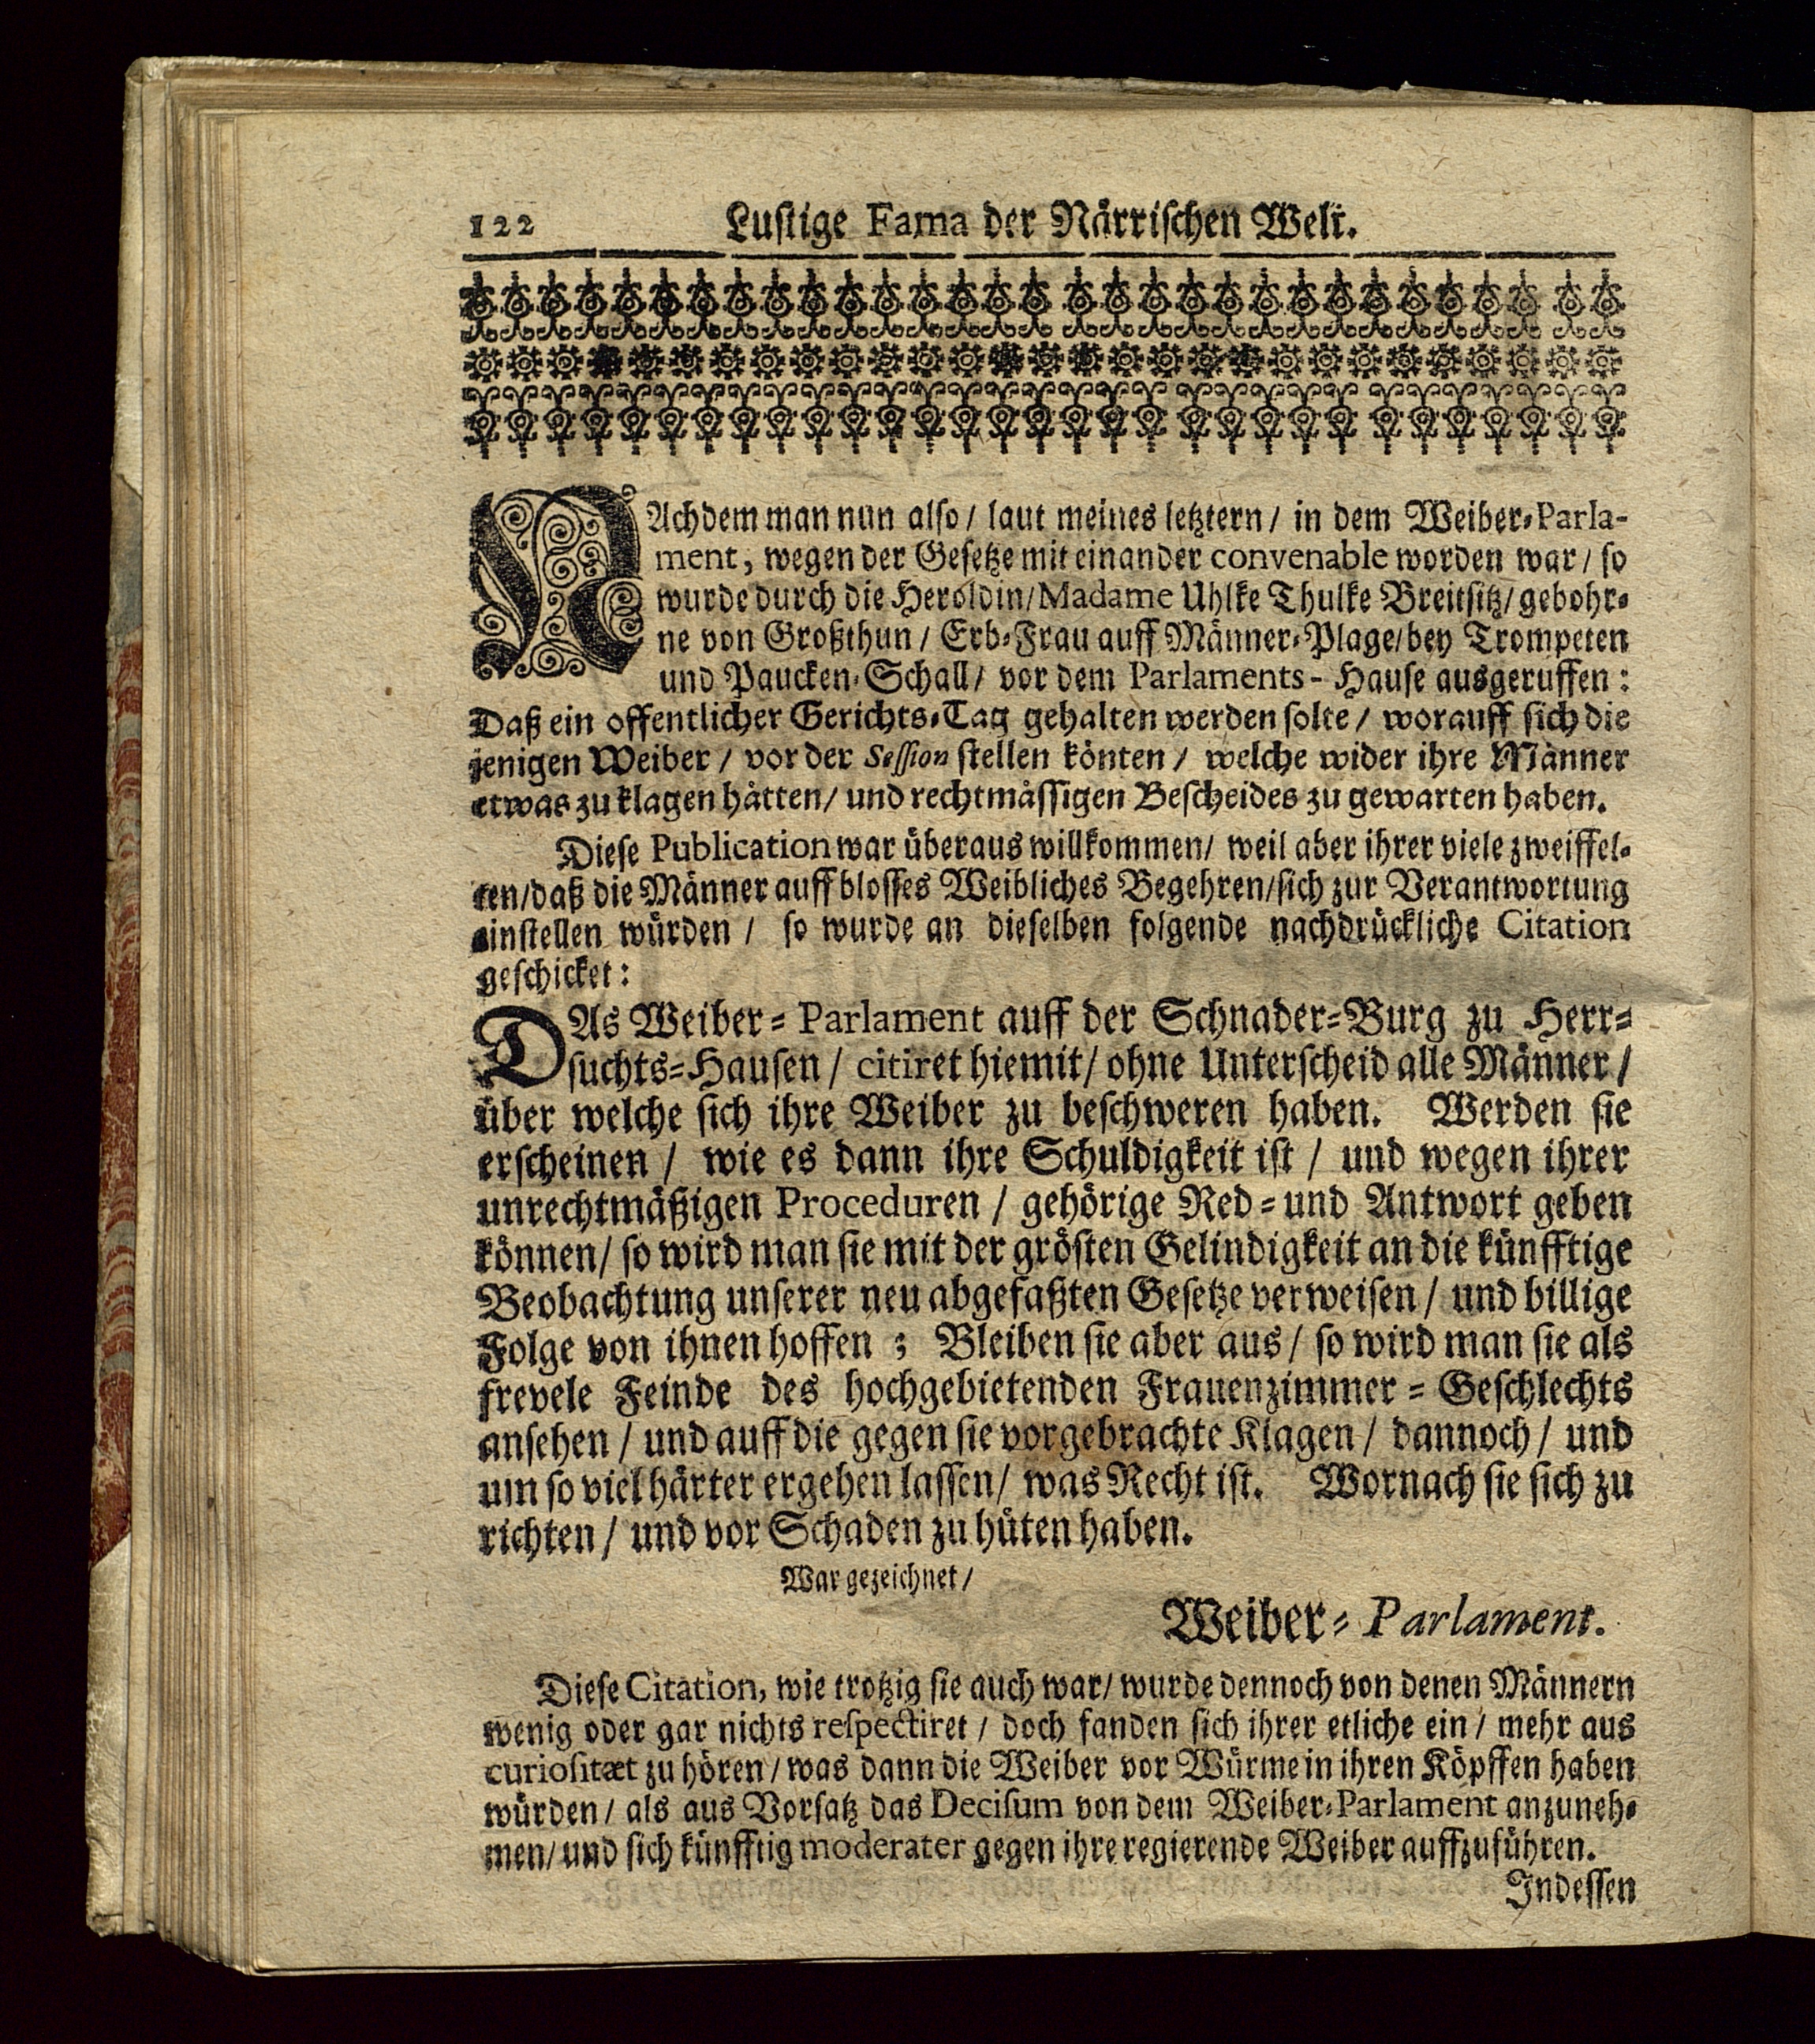 122 Lustige Fama der Närrischen Welt.
NAchdem man nun also / laut meines letztern / in dem Weiber-Parla-
ment, wegen der Gesetze mit einander convenable worden war / so
wurde durch die Heroldin / Madame Uhlke Thulke Breitsitz / gebohr-
ne von Großthun / Erb-Frau auff Männer-Plage / bey Trompeten
und Paucken-Schall / vor dem Parlaments-Hause ausgeruffen:
Daß ein offentlicher Gerichts-Tag gehalten werden solte / worauff sich die
jenigen Weiber / vor der Session stellen könten / welche wider ihre Männer
etwas zu klagen hätten / und rechtmässigen Bescheides zu gewarten haben.
Diese Publication war überaus willkommen / weil aber ihrer viele zweiffel-
ten / daß die Männer auff blosses Weibliches Begehren / sich zur Verantwortung
einstellen würden / so wurde an dieselben folgende nachdrückliche Citation
geschicket:
DAs Weiber-Parlament auff der Schnader-Burg zu Herr-
suchts-Hausen / citiret hiemit / ohne Unterscheid alle Männer /
über welche sich ihre Weiber zu beschweren haben. Werden sie
erscheinen / wie es dann ihre Schuldigkeit ist / und wegen ihrer
unrechtmäßigen Proceduren / gehörige Red- und Antwort geben
können / so wird man sie mit der grösten Gelindigkeit an die künfftige
Beobachtung unserer neu abgefaßten Gesetze verweisen / und billige
Folge von ihnen hoffen; Bleiben sie aber aus / so wird man sie als
frevele Feinde des hochgebietenden Frauenzimmer-Geschlechts
ansehen / und auff die gegen sie vorgebrachte Klagen / dannoch / und
um so viel härter ergehen lassen / was Recht ist. Wornach sie sich zu
richten / und vor Schaden zu hüten haben.
War gezeichnet /
Weiber-Parlament.
Diese Citation, wie trotzig sie auch war / wurde dennoch von denen Männern
wenig oder gar nichts respectiret / doch fanden sich ihrer etliche ein / mehr aus
curiositæt zu hören / was dann die Weiber vor Würme in ihren Köpffen haben
würden / als aus Vorsatz das Decisum von dem Weiber-Parlament anzuneh-
men / und sich künfftig moderater gegen ihre regierende Weiber auffzuführen.
Indessen